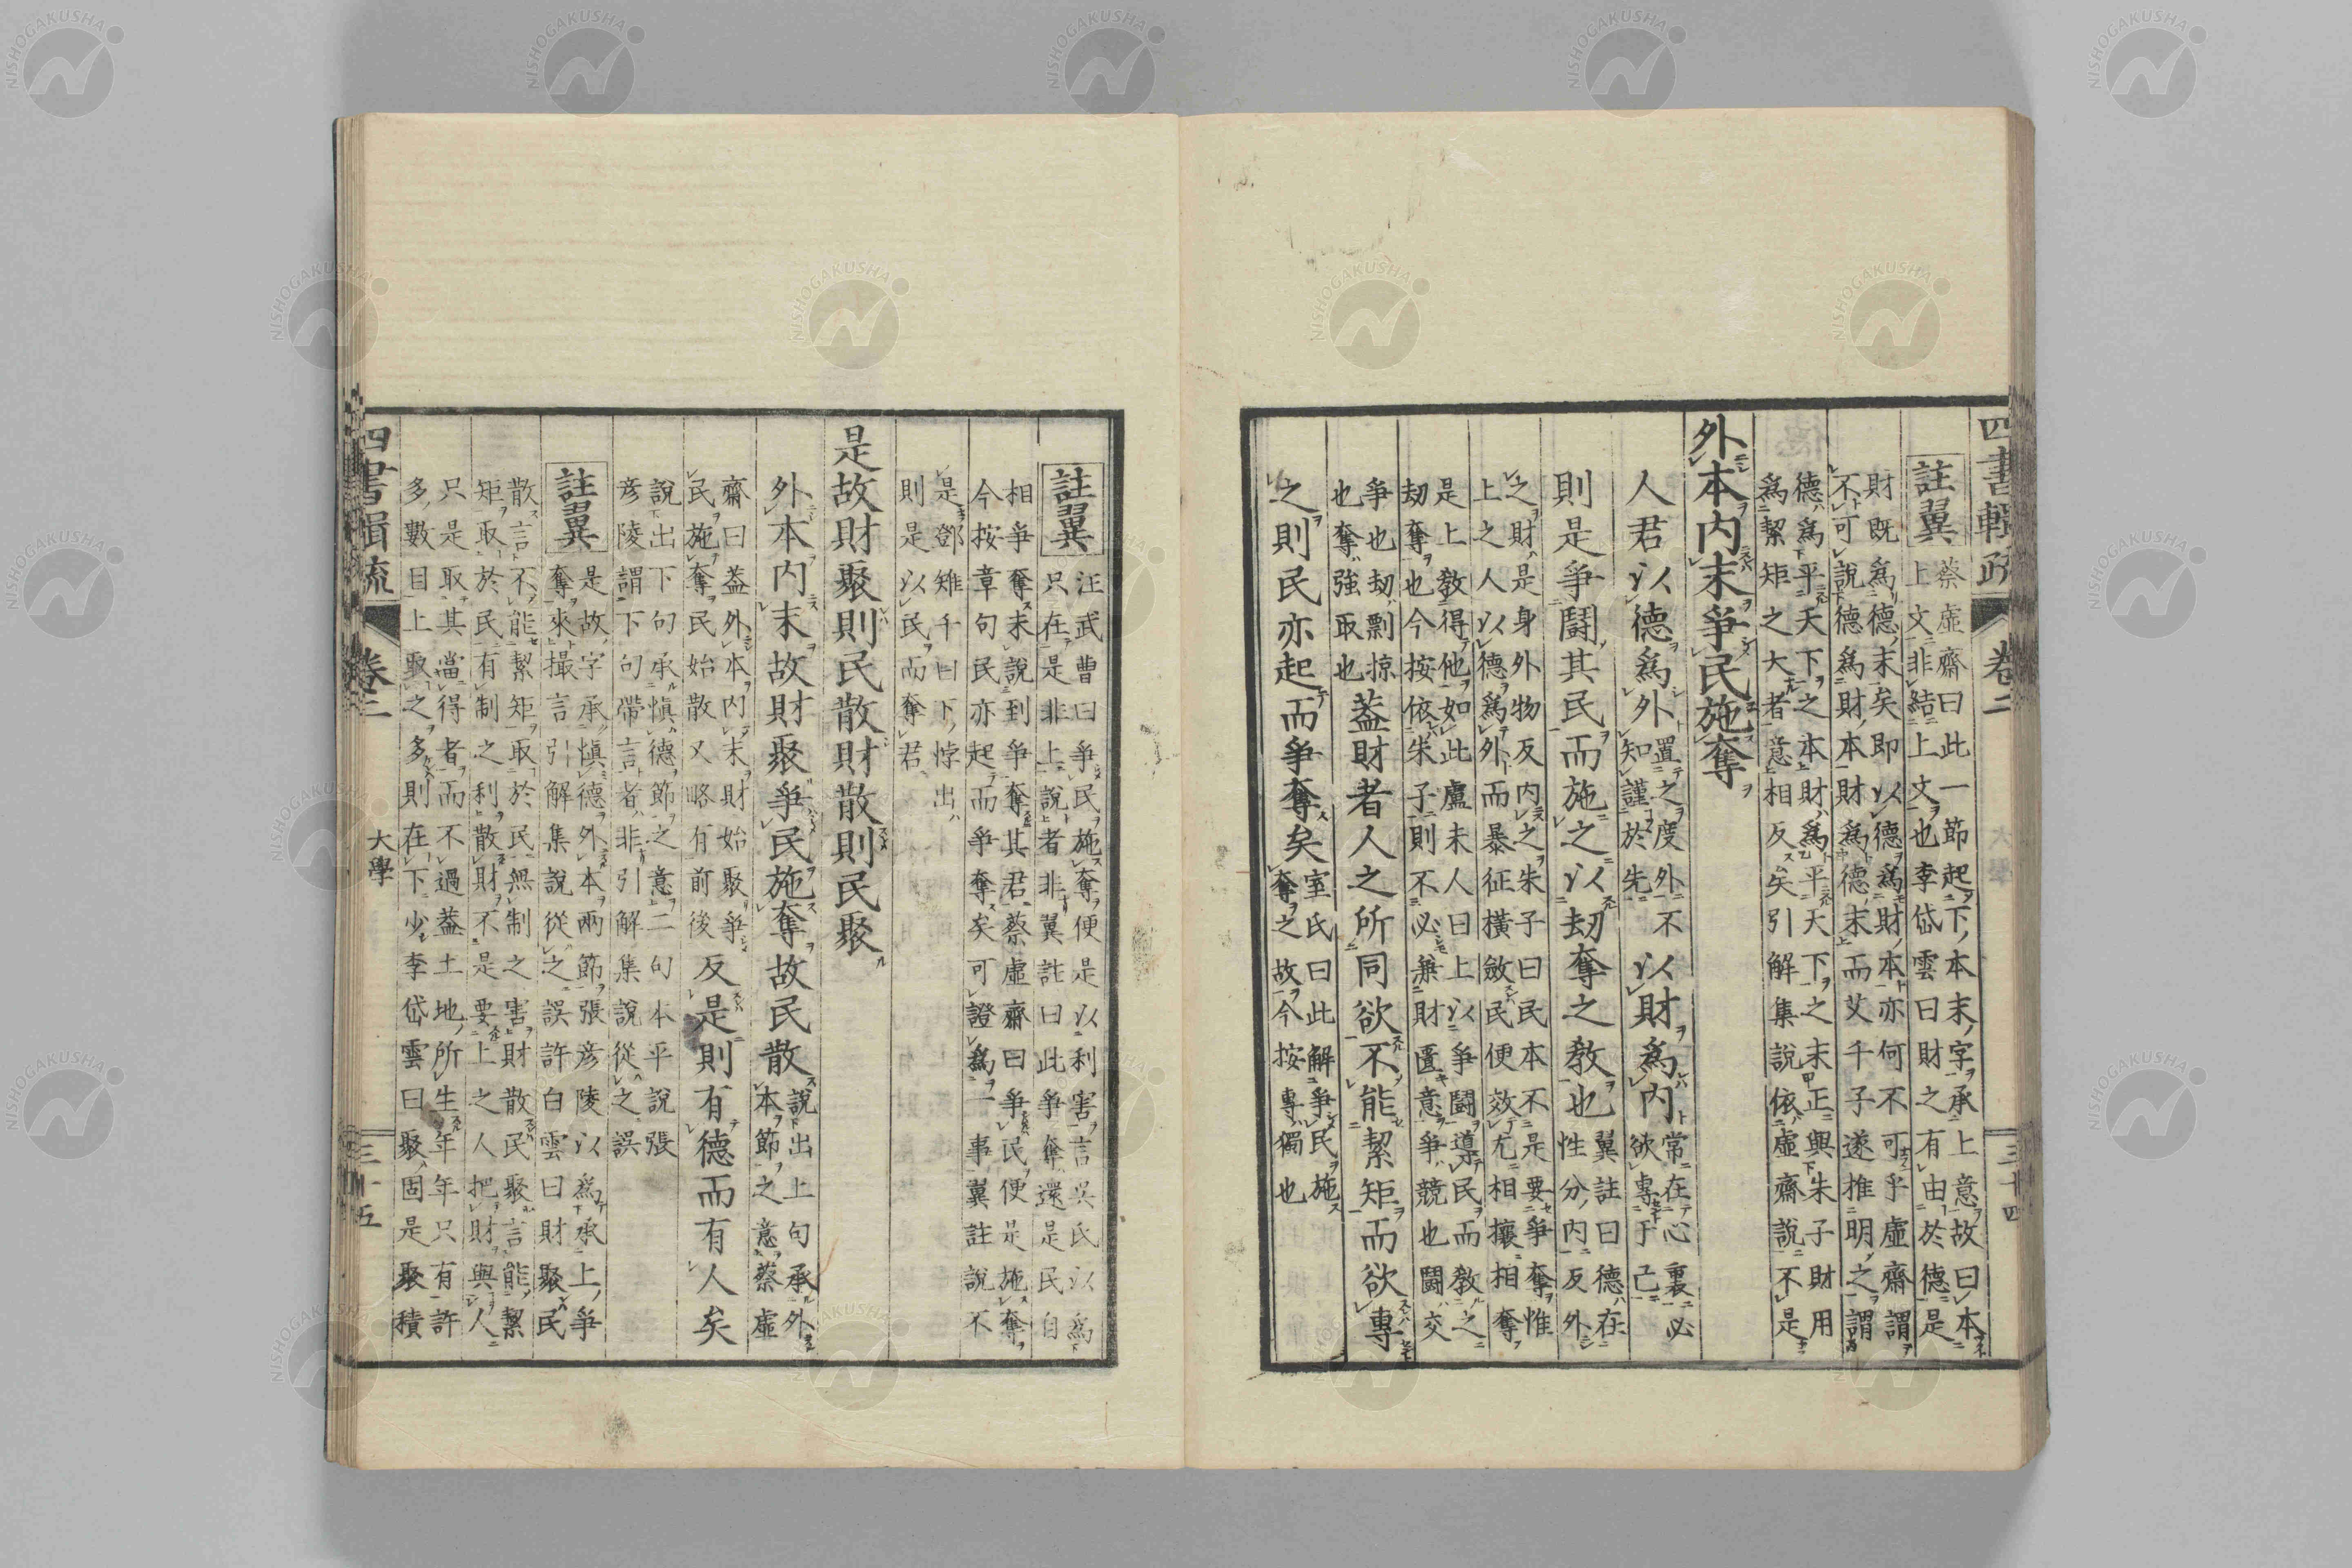 四書輯疏 卷二 三十四
註翼
蔡虛齋曰此一節起下本末字承上意故曰本
上文非結上文也李岱雲曰財之有由於德是
財既爲德末矣即以德爲財本亦何不可乎虛齋謂
不可說德爲財本財爲德末而艾千子遂推明之謂
德爲平天下之本財爲平天下之末正與朱子財用
爲絜矩之大者意相反矣引解集說依虛齋說不是
外本內末爭民施奪
人君以德爲外
置之度外不
知謹於先
以財爲內
常在心裏必
欲專于己
則是爭鬪其民而施之以劫奪之教也
翼註曰德在
性分內反外
之財是身外物反內之朱子曰民本不是要爭奪惟
上之人以德爲外而暴征橫斂民便效尤相攘相奪
是上教得他如此盧未人曰上以爭鬪導民而教之
劫奪也今按依朱子則不必兼財匱意爭競也鬪交
爭也劫剽掠
也奪強取也
蓋財者人之所同欲不能絜矩而欲專
之則民亦起而爭奪矣
室氏曰此解爭民施
奪之故今按專獨也
註翼
汪武曹曰爭民施奪便是以利害言吳氏以爲
只在是非上說者非翼註曰此爭奪還是民自
相爭奪末說到爭奪其君蔡虛齋曰爭民便是施奪
今按章句民亦起而爭奪矣可證爲一事翼註說不
是鄧雉千曰下悖出
則是以民而奪君
是故財聚則民散財散則民聚
外本內末故財聚爭民施奪故民散
說出上句承外
本節之意蔡虛
齋曰蓋外本內末財始聚爭
民施奪民始散又略有前後
反是則有德而有人矣
說出下句承愼德節之意二句本平說張
彥陵謂下句帶言者非引解集說從之誤
註翼
是故字承愼德外本兩節張彥陵以爲承上爭
奪來撮言引解集說從之誤許白雲曰財聚民
散言不能絜矩取於民無制之害財散民聚言能絜
矩取於民有制之利散財不是要上之人把財與人
只是取其當得者而不過蓋土地所生年年只有許
多數目上取之多則在下少李岱雲曰聚固是聚積
四書輯疏 卷二 大學 三十五